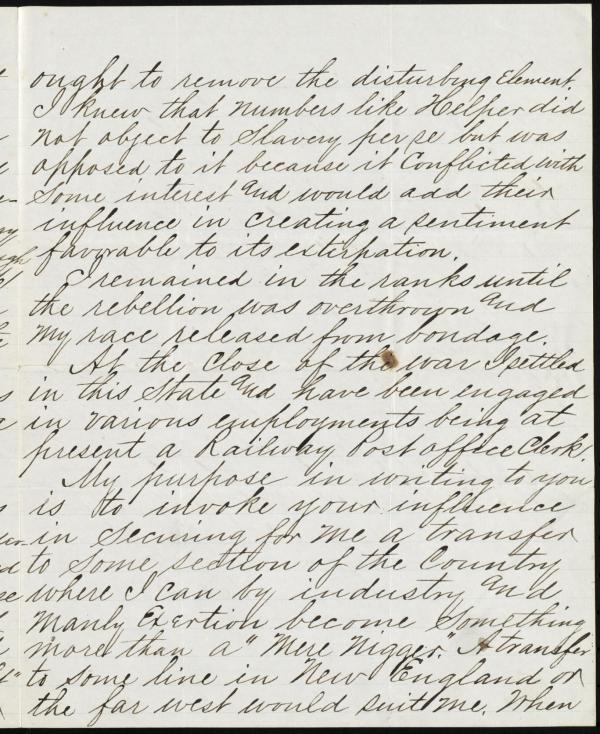 ought to remove the disturbing Element.
I knew that numbers like Helper did
not object to Slavery per se but was
opposed to it because it Conflicted with
Some interest and would add their
influence in creating a sentiment
favorable to its extirpation.
I remained in the ranks until
the rebellion was overthrown and
my race released from bondage.
At the close of the war I settled
in this State and have been engaged
in various employments being at
present a Railway Post office Clerk.
My purpose in writing to you
is to invoke your influence
in Securing for me a transfer
to Some section of the Country
where I can by industry and
Manly Exertion become Something
more than a "Mere Nigger." A transfer
to some line in New England or
the far west would suit me. When